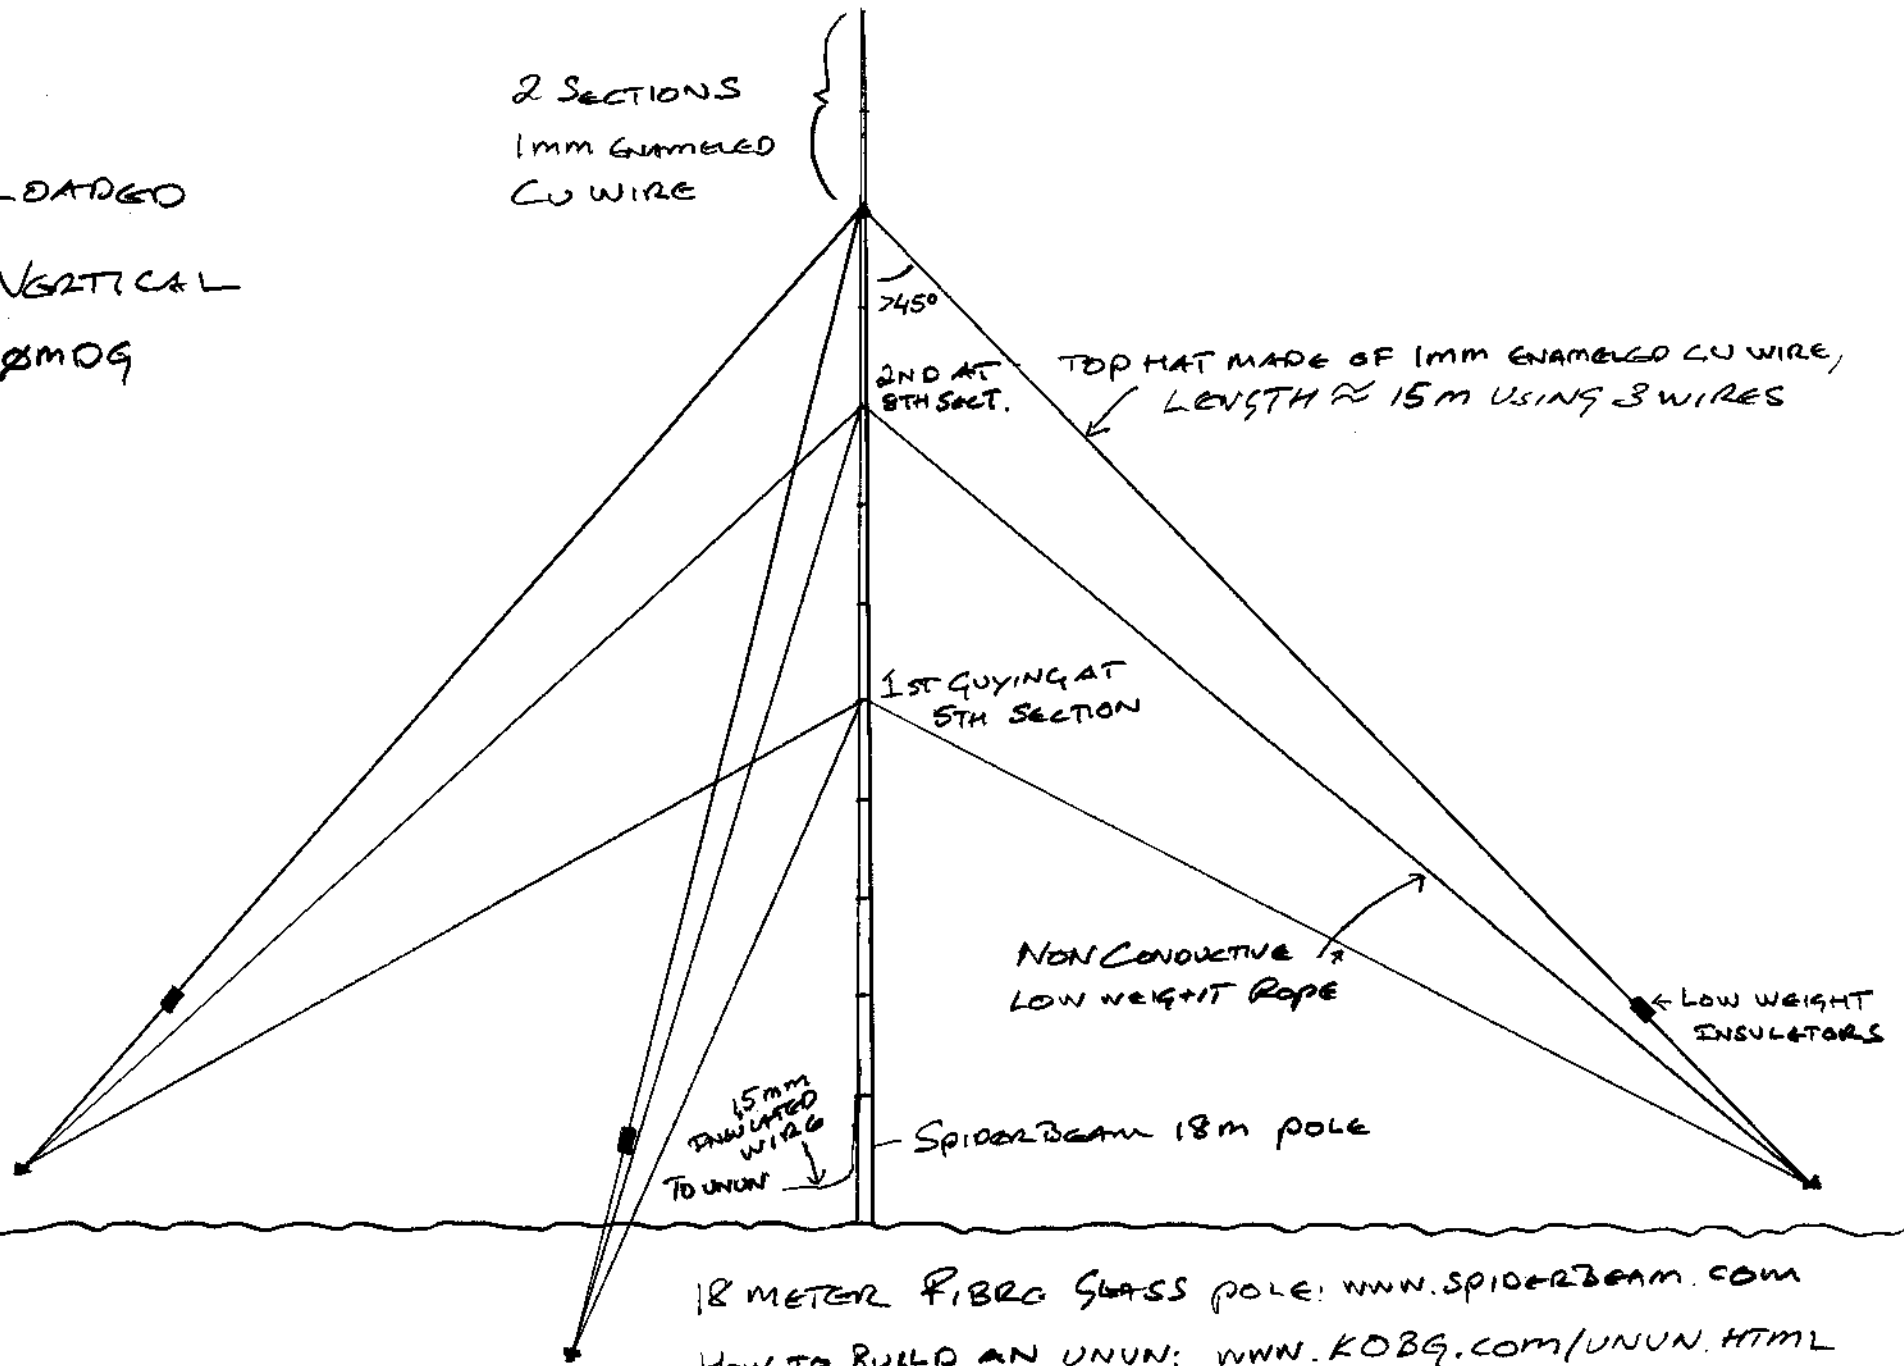 2 SECTIONS
1mm ENAMELED
CU WIRE
LOADED
VERTICAL
ØMDG
>45°
2ND AT
8TH SECT.
TOP HAT MADE OF 1mm ENAMELED CU WIRE,
LENGTH ≈ 15m USING 3 WIRES
1ST GUYING AT
5TH SECTION
NON CONDUCTIVE
LOW WEIGHT ROPE
← LOW WEIGHT
INSULATORS
1,5mm
INSULATED
WIRE
TO UNUN
SPIDERBEAM 18m POLE
18 METER FIBRE GLASS POLE: WWW.SPIDERBEAM.COM
HOW TO BUILD AN UNUN: WWW.K0BG.COM/UNUN.HTML